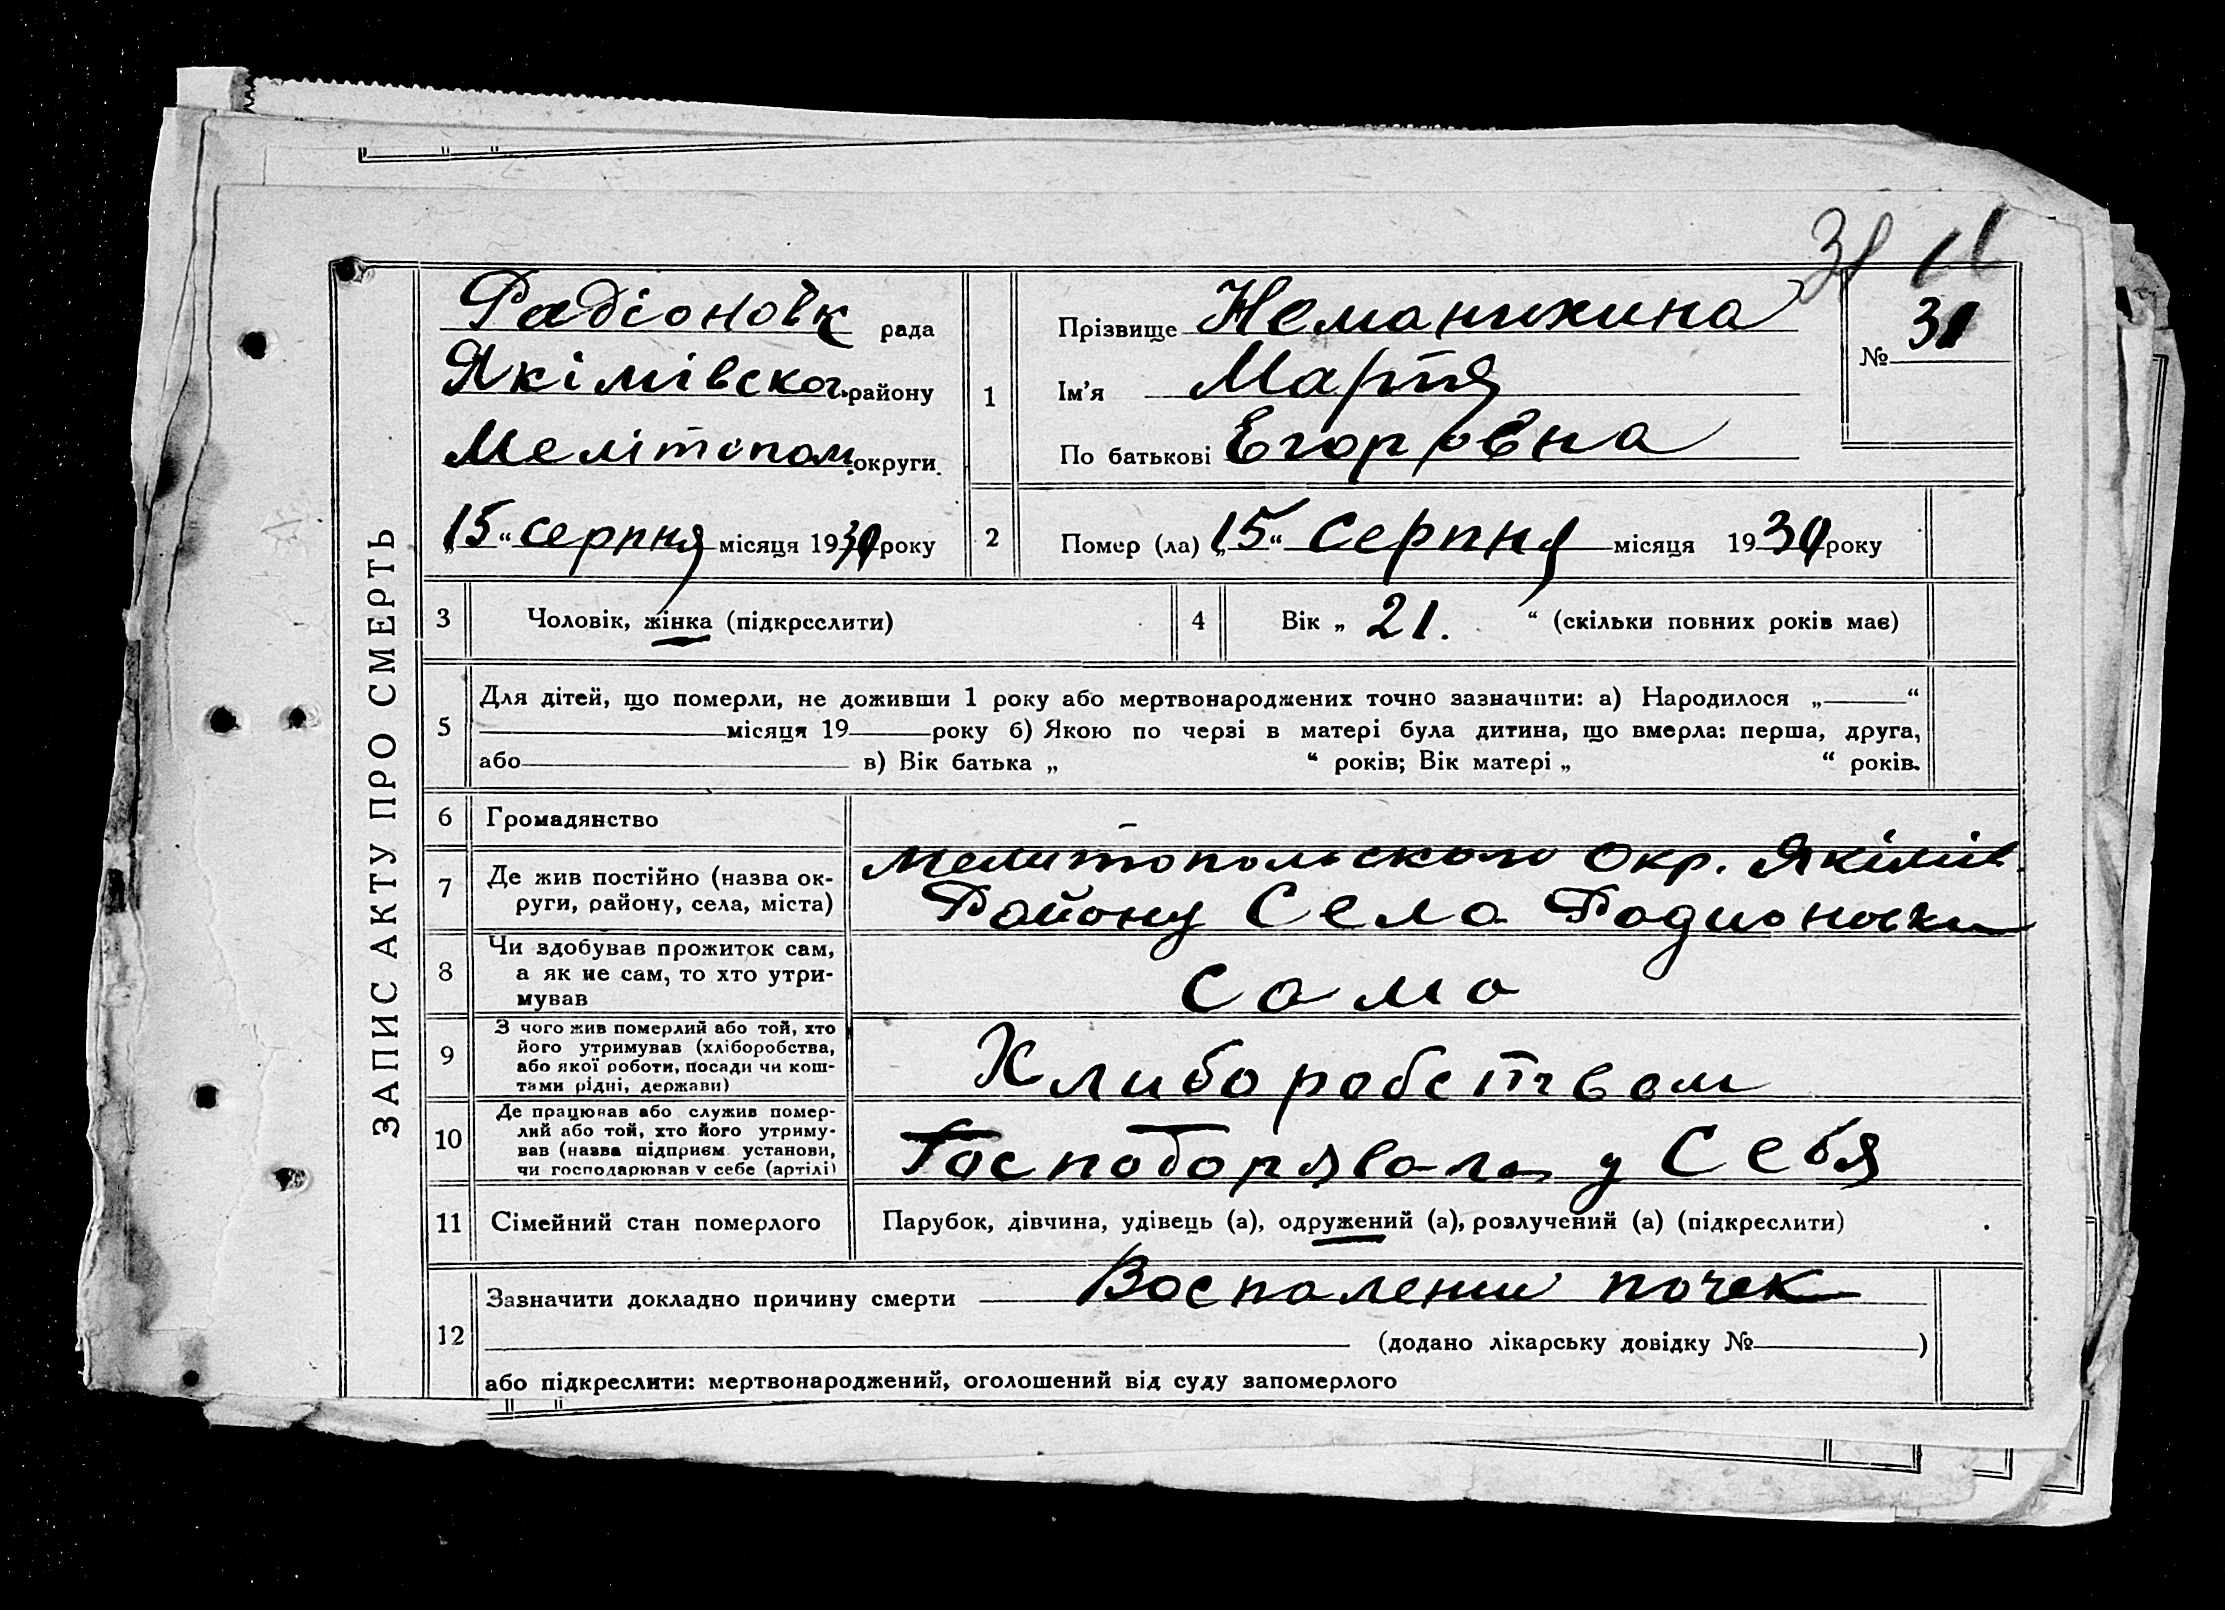 31 11
ЗАПИС АКТУ ПРО СМЕРТЬ
Радіоновк рада
Якімівског. району
Мелітопол. округи.
„15“ серпня місяця 1930 року
1
Прізвище Неманихина
Ім'я Марфя
По батькові Егоровна
№ 31
2
Помер (ла) „15“ серпня місяця 1930 року
3 Чоловік, жінка (підкреслити)
4 Вік „ 21. “ (скільки повних років має)
5
Для дітей, що померли, не доживши 1 року або мертвонароджених точно зазначити: а) Народилося „ “
місяця 19 року б) Якою по черзі в матері була дитина, що вмерла: перша, друга,
або в) Вік батька „ “ років; Вік матері „ “ років.
6 Громадянство
7 Де жив постійно (назва ок-
руги, району, села, міста)
Мелитопольского Окр. Якімів.
Району Села Родионовки
8 Чи здобував прожиток сам,
а як не сам, то хто утри-
мував
Сама
9 З чого жив померлий або той, хто
його утримував (хліборобства,
або якої роботи, посади чи кош-
тами рідні, держави)
Хлиборобством
10 Де працював або служив помер-
лий або той, хто його утриму-
вав (назва підприєм. установи,
чи господарював у себе (артілі)
Господорявала у Себя
11 Сімейний стан померлого
Парубок, дівчина, удівець (а), одружений (а), розлучений (а) (підкреслити)
12 Зазначити докладно причину смерти Воспалении почек
(додано лікарську довідку № )
або підкреслити: мертвонароджений, оголошений від суду запомерлого